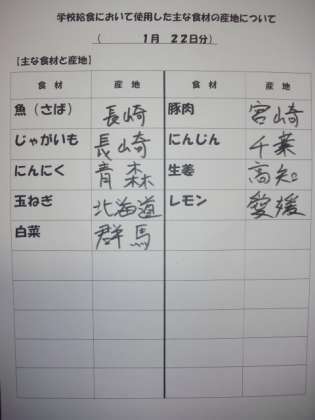 学校給食において使用した主な食材の産地について
( 1月 22日分)
【主な食材と産地】
食 材 産 地 食 材 産 地
魚(さば) 長崎 豚肉 宮崎
じゃがいも 長崎 にんじん 千葉
にんにく 青森 生姜 高知
玉ねぎ 北海道 レモン 愛媛
白菜 群馬